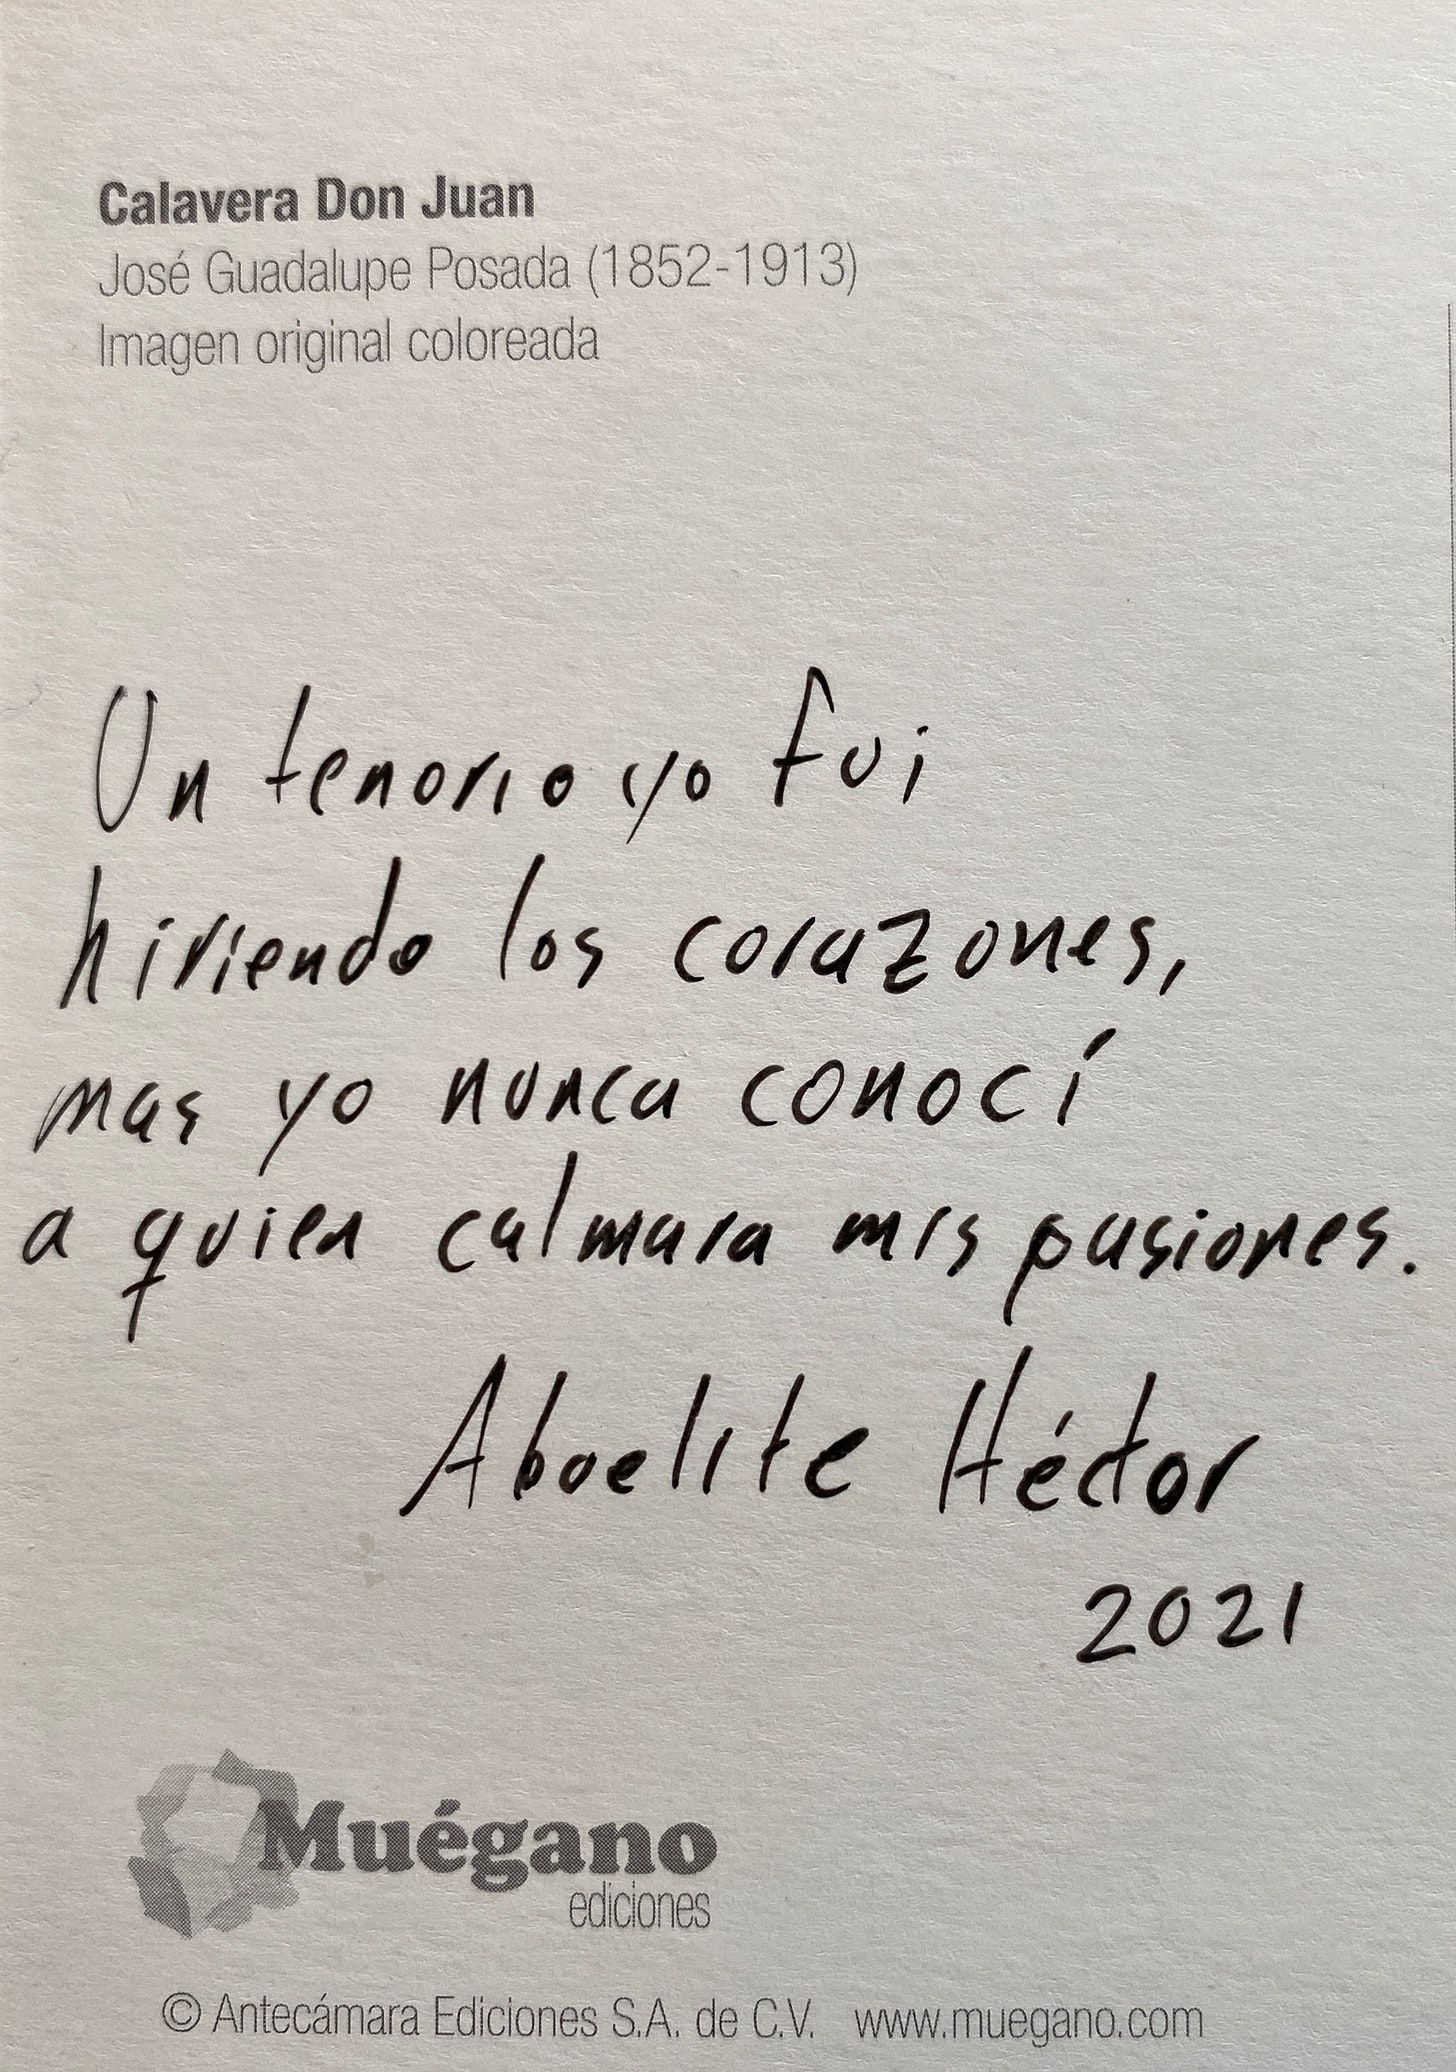 Calavera Don Juan
José Guadalupe Posada (1852-1913)
Imagen original coloreada
Un tenorio yo fui
hiriendo los corazones,
mas yo nunca conocí
a quien calmara mis pasiones.
Abuelite Héctor
2021
Muégano
ediciones
© Antecámara Ediciones S.A. de C.V. www.muegano.com